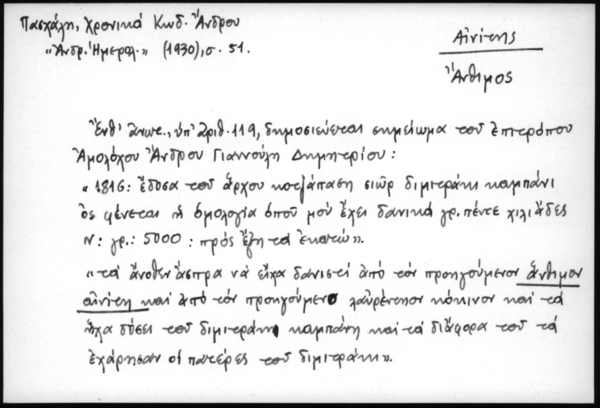 Πασχάλη, Χρονικά Κωδ. Ἄνδρου
«Ἀνδρ. Ἡμερολ.» (1930), σ. 51.
Αἰνίτης
Ἄνθιμος
Ἔνθ' ἀνωτ., ὑπ' ἀριθ. 119, δημοσιεύεται σημείωμα τοῦ ἐπιτρόπου
Ἀμολόχου Ἄνδρου Γιαννούλη Δημητρίου:
«1816: ἔδοσα τοῦ ἄρχου κοτζάπαση σιὸρ διμιτεράκι καμπάνι
ὁς φένεται ἡ ὁμολογία ὁποῦ μοῦ ἔχει δανικά γρ. πέντε χιλιάδες
Ν: γρ.: 5000: πρός ἕξη τά ἑκατώ».
«τά ἄνοθεν ἄσπρα νά εἶχα δανιστί ἀπό τόν προηγούμενον ἄνθιμον
αἰνίτη καί ἀπό τόν προηγούμενο λαὑρέντηον κόκινον καί τά
ἦχα δόσει τοῦ διμιτεράκη καμπάνη καί τά διάφορα τοῦ τά
ἐχάρησαν οἱ πατέρες τοῦ διμιτεράκι».